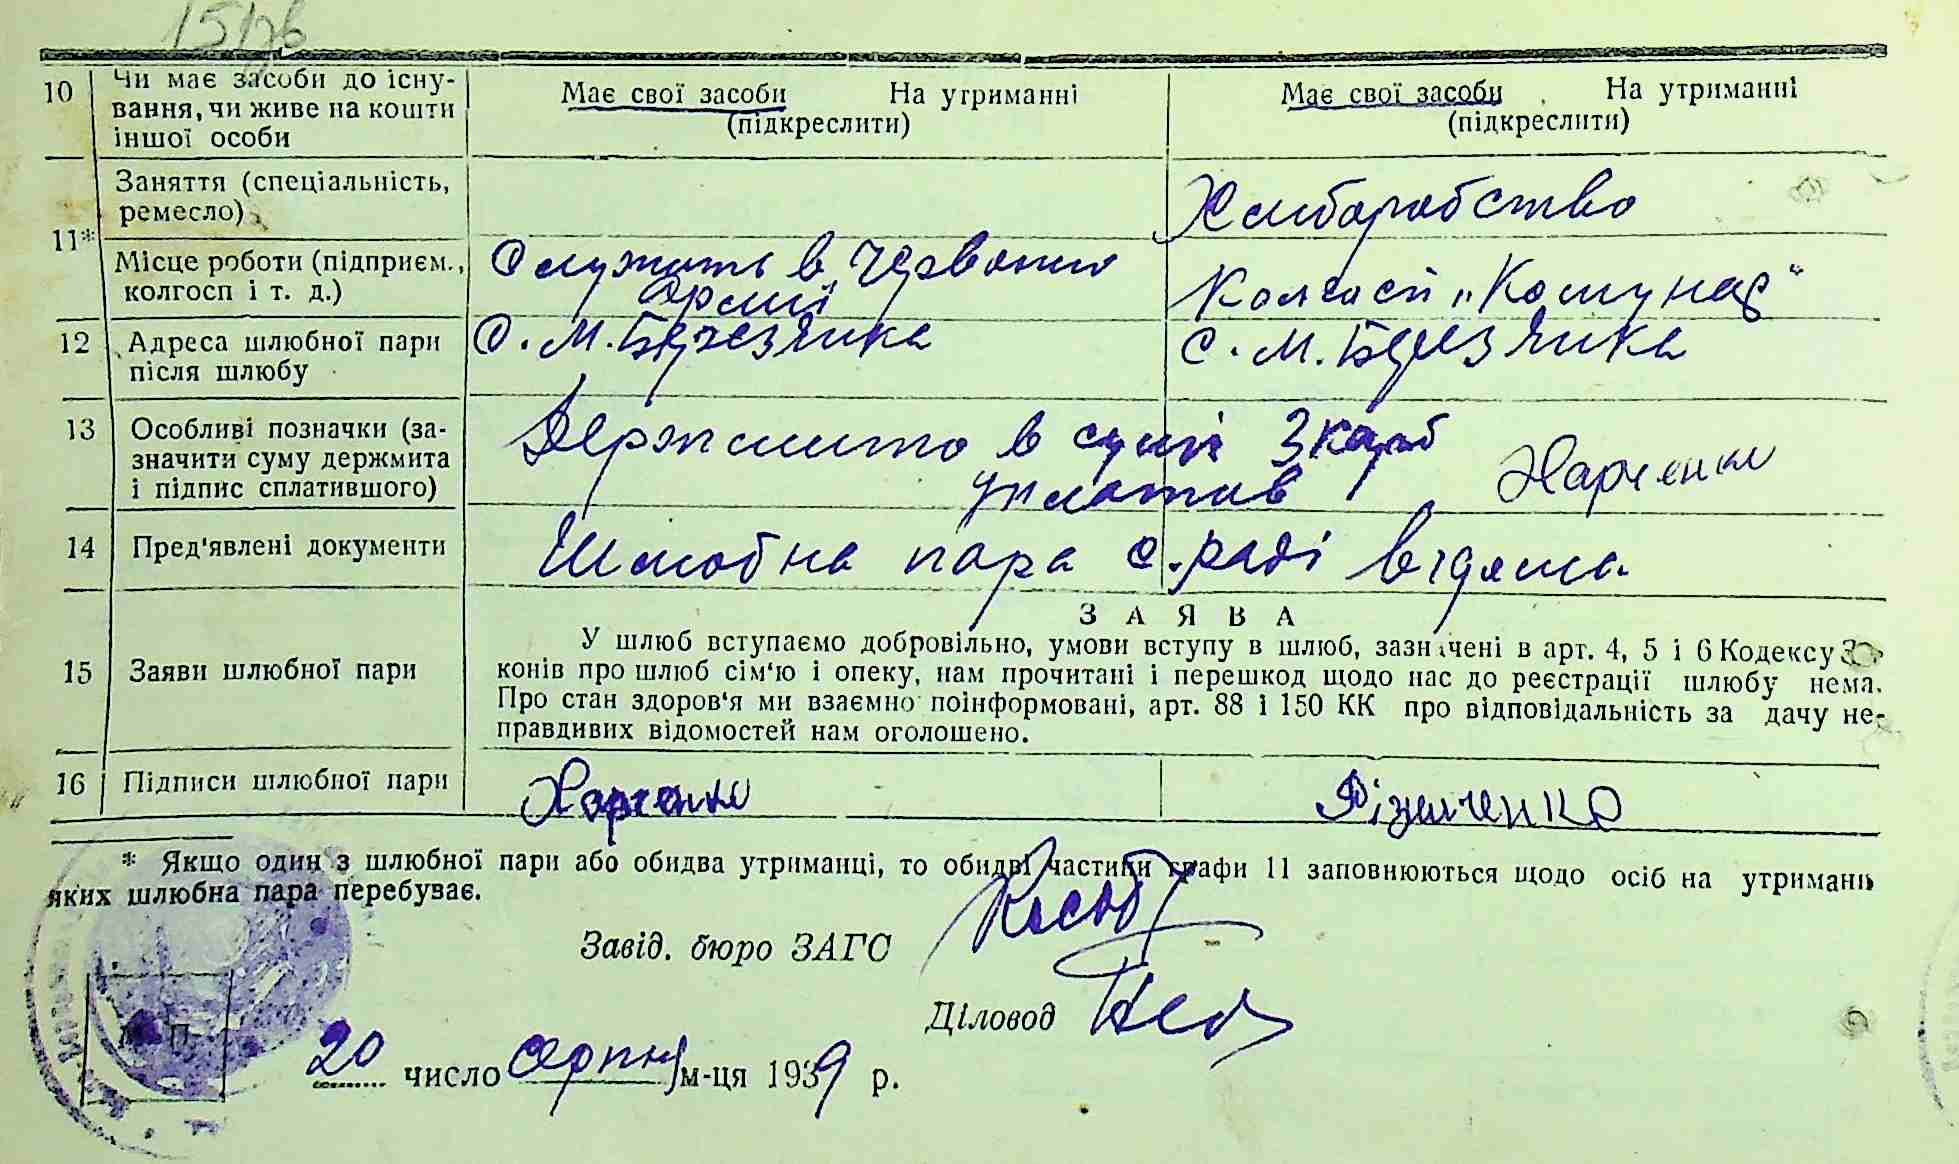 10 Чи має засоби до існу-
вання, чи живе на кошти
іншої особи
Має свої засоби На утриманні
(підкреслити)
Має свої засоби На утриманні
(підкреслити)
11*
Заняття (спеціальність,
ремесло)
Хліборобство
Місце роботи (підприєм.,
колгосп і т. д.)
Служить в Червоній
Армії
Колгосп „Комунар"
12 Адреса шлюбної пари
після шлюбу
с. М. Березянка
с. М. Березянка
13 Особливі позначки (за-
значити суму держмита
і підпис сплатившого)
Держмито в сумі 3 карб
уплатив
Харченко
14 Пред'явлені документи
Шлюбна пара с. раді відома.
15 Заяви шлюбної пари
ЗАЯВА
У шлюб вступаємо добровільно, умови вступу в шлюб, зазначені в арт. 4, 5 і 6 Кодексу За-
конів про шлюб сім'ю і опеку, нам прочитані і перешкод щодо нас до реєстрації шлюбу нема.
Про стан здоров'я ми взаємно поінформовані, арт. 88 і 150 КК про відповідальність за дачу не-
правдивих відомостей нам оголошено.
16 Підписи шлюбної пари
Харченко
* Якщо один з шлюбної пари або обидва утриманці, то обидві частини графи 11 заповнюються щодо осіб на утриманні
яких шлюбна пара перебуває.
Завід. бюро ЗАГС
Діловод
М. П.
20 число серпня м-ця 1939 р.